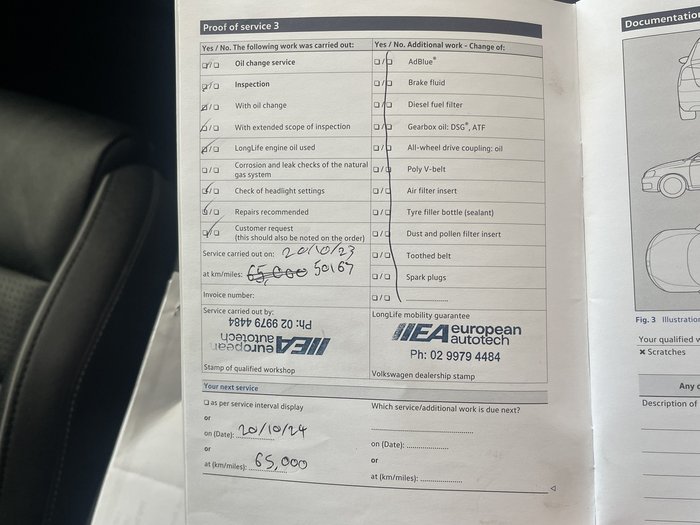 Proof of service 3
Yes / No. The following work was carried out: Yes / No. Additional work - Change of:
Oil change service AdBlue®
Inspection Brake fluid
With oil change Diesel fuel filter
With extended scope of inspection Gearbox oil: DSG®, ATF
LongLife engine oil used All-wheel drive coupling: oil
Corrosion and leak checks of the natural Poly V-belt
gas system
Check of headlight settings Air filter insert
Repairs recommended Tyre filler bottle (sealant)
Customer request Dust and pollen filter insert
(this should also be noted on the order)
Service carried out on: 20/10/23 Toothed belt
at km/miles: 65,000 50167 Spark plugs
Invoice number:
Service carried out by: LongLife mobility guarantee
Ph: 02 9979 4484
EA european autotech
EA european autotech
Ph: 02 9979 4484
Stamp of qualified workshop Volkswagen dealership stamp
Your next service
as per service interval display Which service/additional work is due next?
or
on (Date): 20/10/24 on (Date):
or or
at (km/miles): 65,000 at (km/miles):
Documentation
Fig. 3 Illustration
Your qualified
× Scratches
Any
Description of